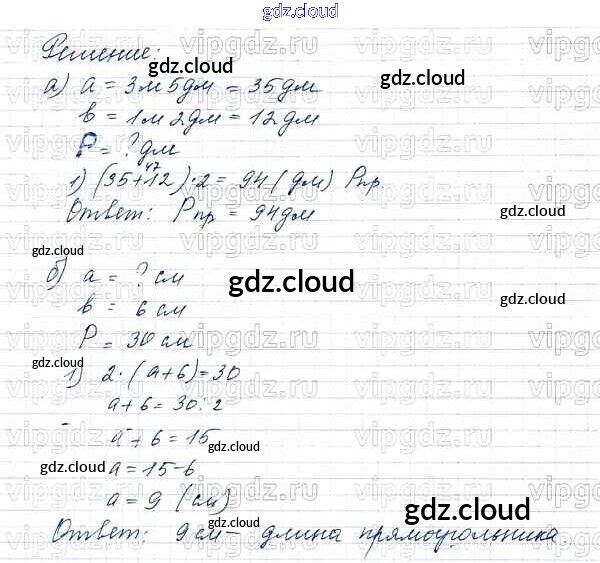 gdz.cloud
Решение:
gdz.cloud
gdz.cloud
а) a = 3м 5дм = 35дм
b = 1м 2дм = 12дм
P = ? дм
47
1) (35+12)·2 = 94 (дм) Pпр.
Ответ: Pпр = 94дм
gdz.cloud
gdz.cloud
б) a = ? см
gdz.cloud
gdz.cloud
b = 6 см
P = 30 см
gdz.cloud
1) 2·(a+6)=30
a+6 = 30:2
a+6 = 15
gdz.cloud
gdz.cloud
a = 15-6
a = 9 (см)
gdz.cloud
Ответ: 9см – длина прямоугольника.
gdz.cloud
vipgdz.ru vipgdz.ru vipgdz.ru